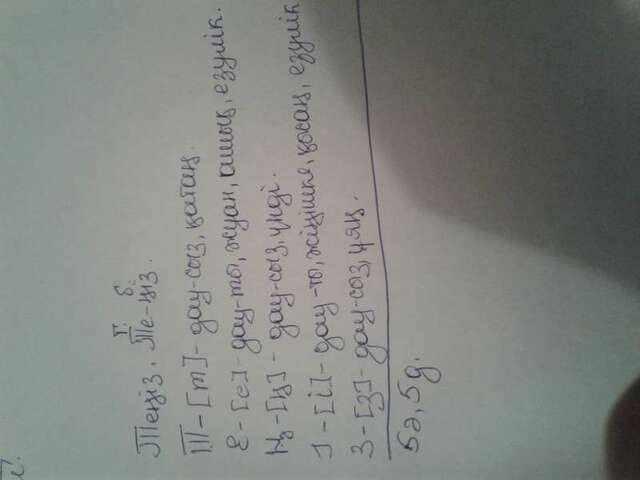 Теңіз. Те-ңіз.
т. б.
Т-[т]-дау-сыз, қатаң.
Е-[е]-дау-ты, жуан, ашық, езулік.
Ң-[ң]-дау-сыз, үнді.
І-[і]-дау-ты, жіңішке, қысаң, езулік
З-[з]-дау-сыз, ұяң.
5ә, 5д.